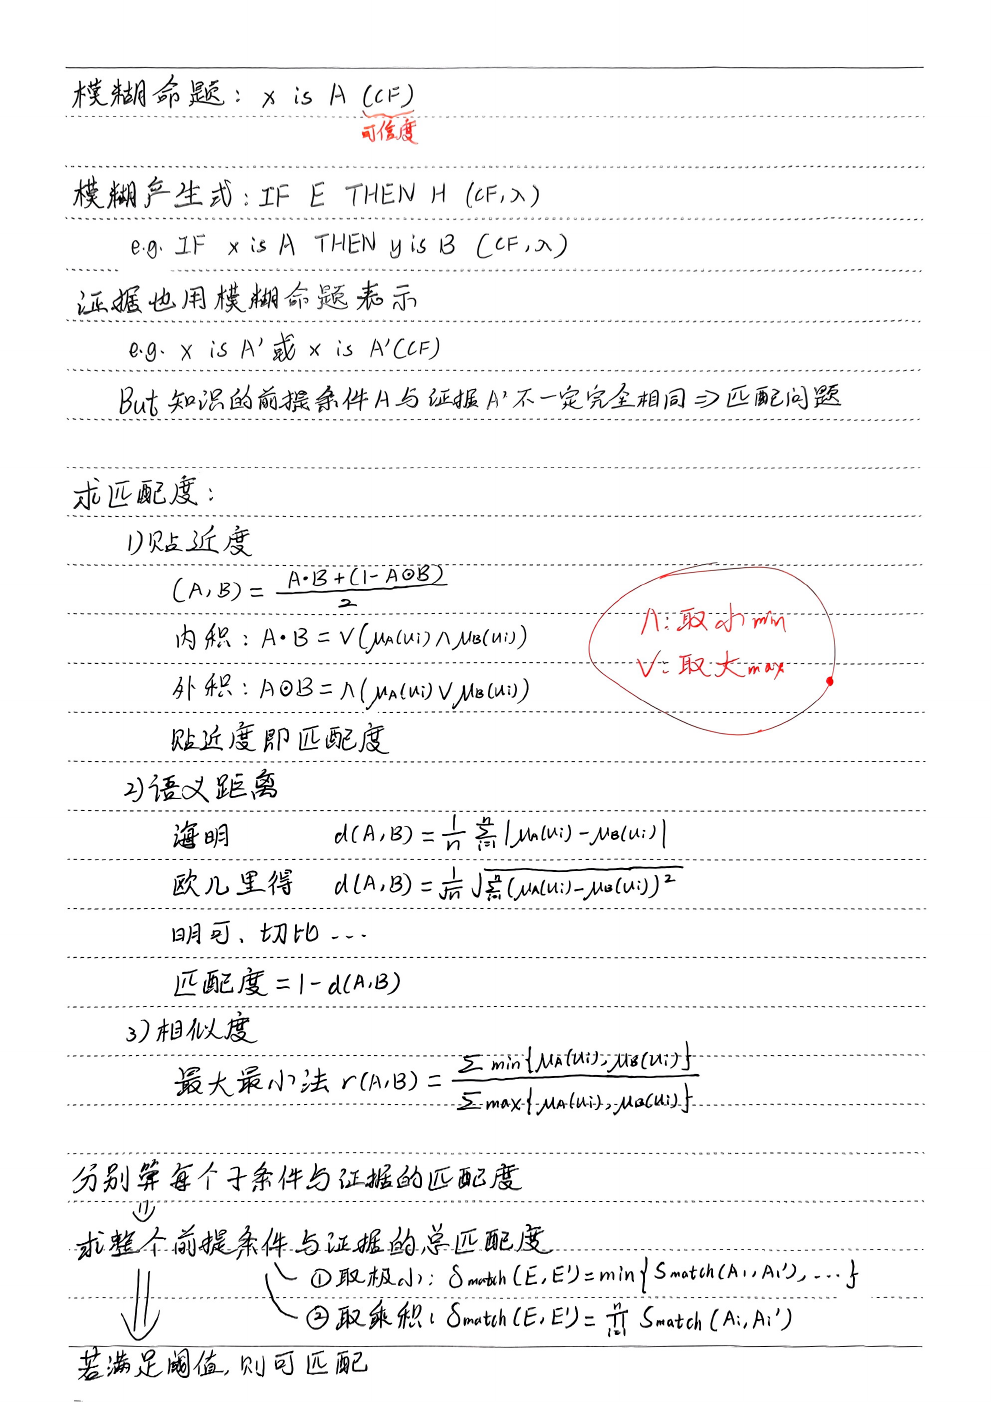 模糊命题: x is A (CF)
可信度
模糊产生式: IF E THEN H (CF,λ)
e.g. IF x is A THEN y is B (CF,λ)
证据也用模糊命题表示
e.g. x is A' 或 x is A'(CF)
But 知识的前提条件A与证据A'不一定完全相同⇒匹配问题
求匹配度:
1)贴近度
(A,B) = A·B+(1-A⊙B) / 2
内积: A·B = ∨(μA(ui)∧μB(ui))
外积: A⊙B = ∧(μA(ui)∨μB(ui))
∧:取小min
∨:取大max
贴近度即匹配度
2)语义距离
海明 d(A,B) = 1/n Σ(i=1..n) |μA(ui)-μB(ui)|
欧几里得 d(A,B) = 1/√n √(Σ(i=1..n) (μA(ui)-μB(ui))²)
明可、切比...
匹配度=1-d(A,B)
3)相似度
最大最小法 r(A,B) = Σmin{μA(ui),μB(ui)} / Σmax{μA(ui),μB(ui)}
分别算每个子条件与证据的匹配度
⇓
求整个前提条件与证据的总匹配度
①取极小: δmatch(E,E')=min{δmatch(A1,A1'),...}
②取乘积: δmatch(E,E')=∏(i=1..n) δmatch(Ai,Ai')
⇓
若满足阈值,则可匹配